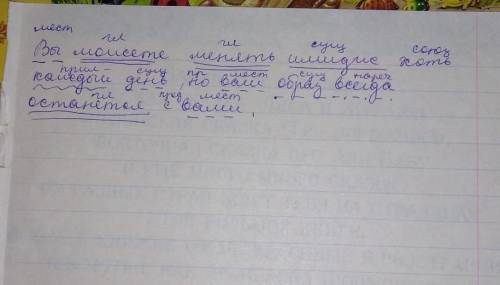 мест
гл гл сущ союз
Вы можете менять имидж хоть
прил- сущ пр мест сущ нареч
каждый день, но ваш образ всегда
гл пред мест
останется с вами.